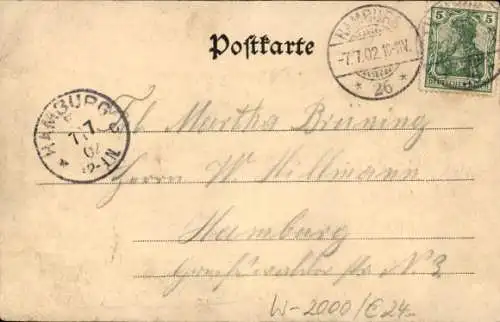 Postkarte
HAMBURG
-7.7.02.
* 26 *
5
HAMBURG
7.7.
02
Martha Brüning
Herrn W. Hillmann
Hamburg
No 3
W-2000/€24-